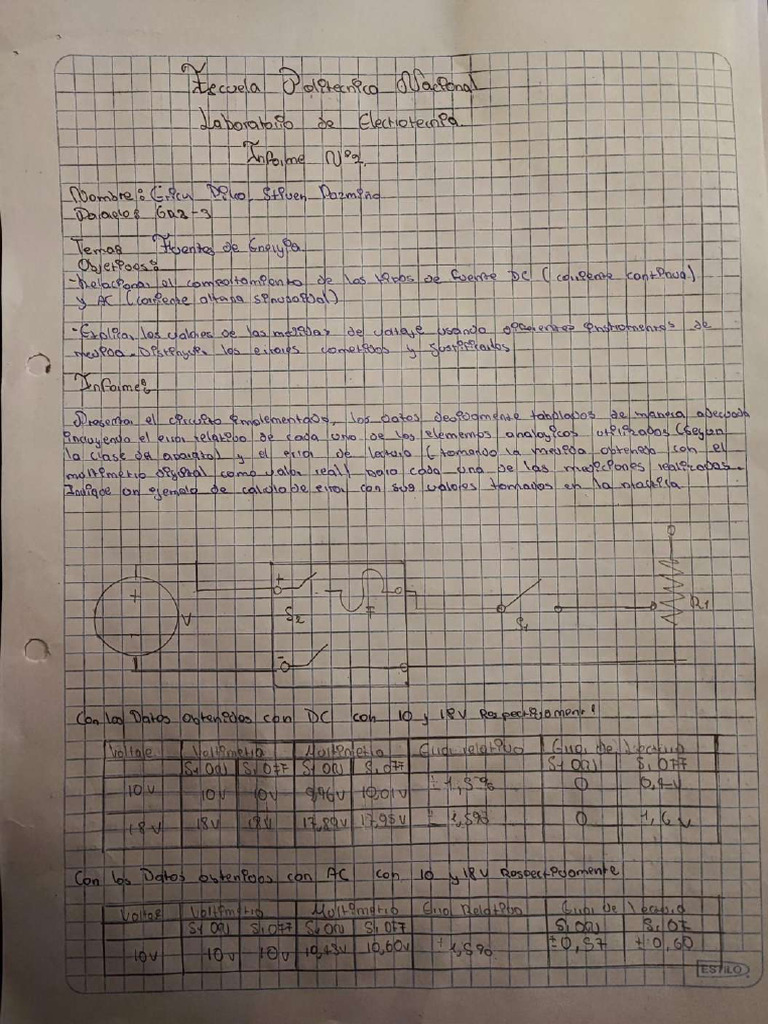 Escuela Politecnica Nacional
Laboratorio de Electrotecnia
Informe N°2
Nombre: Stiven Pazmiño
Paralelo: GR2-3
Tema: Fuentes de Energia
Objetivos:
-Relacionar el comportamiento de los tipos de fuente DC (corriente continua)
y AC (corriente alterna sinusoidal)
-Explicar los valores de las medidas de voltaje usando diferentes instrumentos de
medida. Distinguir los errores cometidos y justificarlos
Informe:
Presentar el circuito implementado, los datos debidamente tabulados de manera adecuada
incluyendo el error relativo de cada uno de los elementos analogicos utilizados (según
la clase de aparato) y el error de lectura (tomando la medida obtenida con el
multimetro digital como valor real) para cada una de las mediciones realizadas.
Indique un ejemplo de calculo de error con sus valores tomados en la practica
+ + V S2 F S1 R1
-
Con los Datos obtenidos con DC con 10 y 18V Respectivament
Voltaje Voltimetro Multimetro Error relativo Error de lectura
S1 ON S1 OFF S1 ON S1 OFF S1 ON S1 OFF
10V 10V 10V 9,96V 10,01V ± 1,5% 0
18V 18V 18V 17,89V 17,95V ± 1,5% 0 1,6V
Con los Datos obtenidos con AC con 10 y 18V Respectivamente
Voltaje Voltimetro Multimetro Error Relativo Error de lectura
S1 ON S1 OFF S1 ON S1 OFF S1 ON S1 OF
10V 10V 10V 10,60V ± 1,5% ± 0,57 ± 0,60
ESTILO